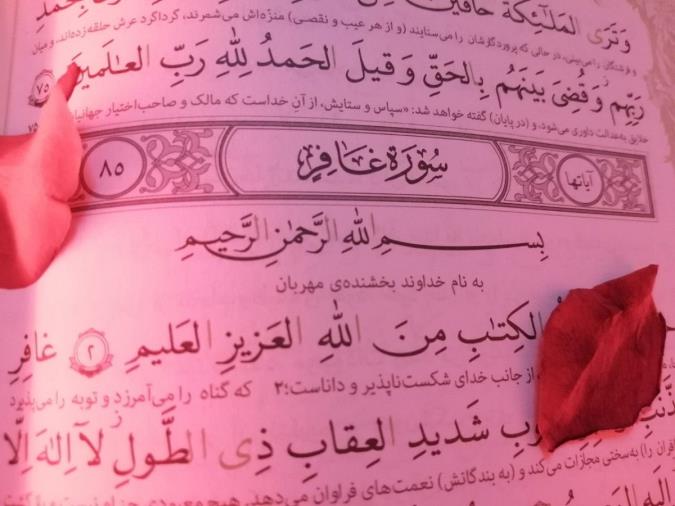 وَتَرَى المَلَآئِكَةَ حَافِّينَ
و فرشتگان را می‌بینی، در حالی که پروردگارشان را می‌ستایند (و از هر عیب و نقصی) منزّه‌اش می‌شمرند، گرداگرد عرش حلقه زده‌اند، و میان
رَبِّهِم وَقُضِىَ بَينَهُم بِالحَقِّ وَقيلَ الحَمدُ لِلّٰهِ رَبِّ العٰلَمينَ ٧٥
خلایق به عدالت داوری می‌شود، و (در پایان) گفته خواهد شد: «سپاس و ستایش، از آنِ خداست که مالک و صاحب‌اختیار جهانیان
آیاتها سُورَةِ غَافِرٍ ٨٥
بِسـمِ اللّٰهِ الرَّحمٰنِ الرَّحيمِ
به نام خداوند بخشنده‌ی مهربان
الكِتٰبِ مِنَ اللّٰهِ العَزيزِ العَليمِ ٢ غافِرِ
از جانب خدای شکست‌ناپذیر و داناست؛۲ که گناه را می‌آمرزد و توبه را می‌پذیرد
شَديدِ العِقابِ ذِى الطَّولِ لَآ اِلٰهَ اِلّا
را) به‌سختی مجازات می‌کند و (به بندگانش) نعمت‌های فراوان می‌دهد.